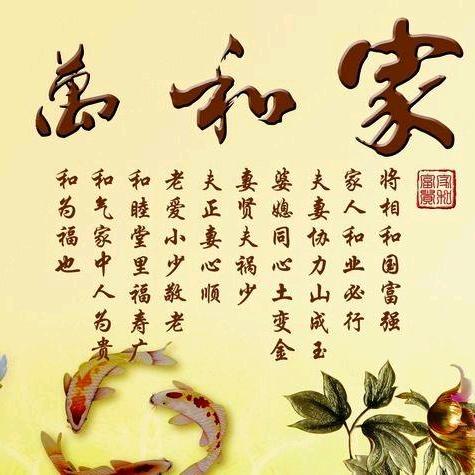 家和萬
将相和国富强
家人和业必行
夫妻协力山成玉
婆媳同心土变金
妻贤夫祸少
夫正妻心顺
老爱小少敬老
和睦堂里福寿广
和气家中人为贵
和为福也